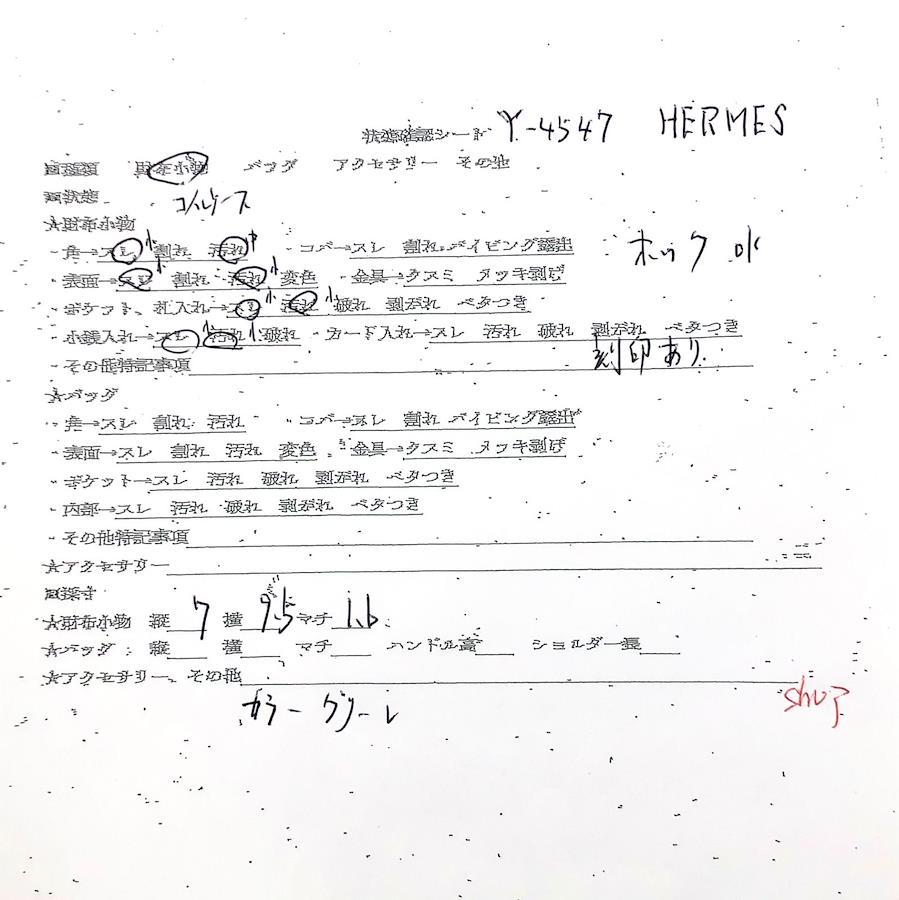 状態確認シート Y-4547 HERMES
■種類 財布小物 バッグ アクセサリー その他
■状態 コインケース
★財布小物
・角→スレ小 割れ 汚れ中 ・コバ→スレ 割れ パイピング露出 ホック OK
・表面→スレ小 割れ 汚れ小 変色 ・金具→クスミ メッキ剥げ
・ポケット、札入れ→スレ小 汚れ小 破れ 剥がれ ベタつき
・小銭入れ→スレ小 汚れ小 破れ ・カード入れ→スレ 汚れ 破れ 剥がれ ベタつき
・その他特記事項 刻印あり
★バッグ
・角→スレ 割れ 汚れ ・コバ→スレ 割れ パイピング露出
・表面→スレ 割れ 汚れ 変色 ・金具→クスミ メッキ剥げ
・ポケット→スレ 汚れ 破れ 剥がれ ベタつき
・内部→スレ 汚れ 破れ 剥がれ ベタつき
・その他特記事項
★アクセサリー
■採寸
★財布小物 縦 7 横 9.5 マチ 1.6
★バッグ：縦 横 マチ ハンドル高 ショルダー長
★アクセサリー、その他
カラー グリーン